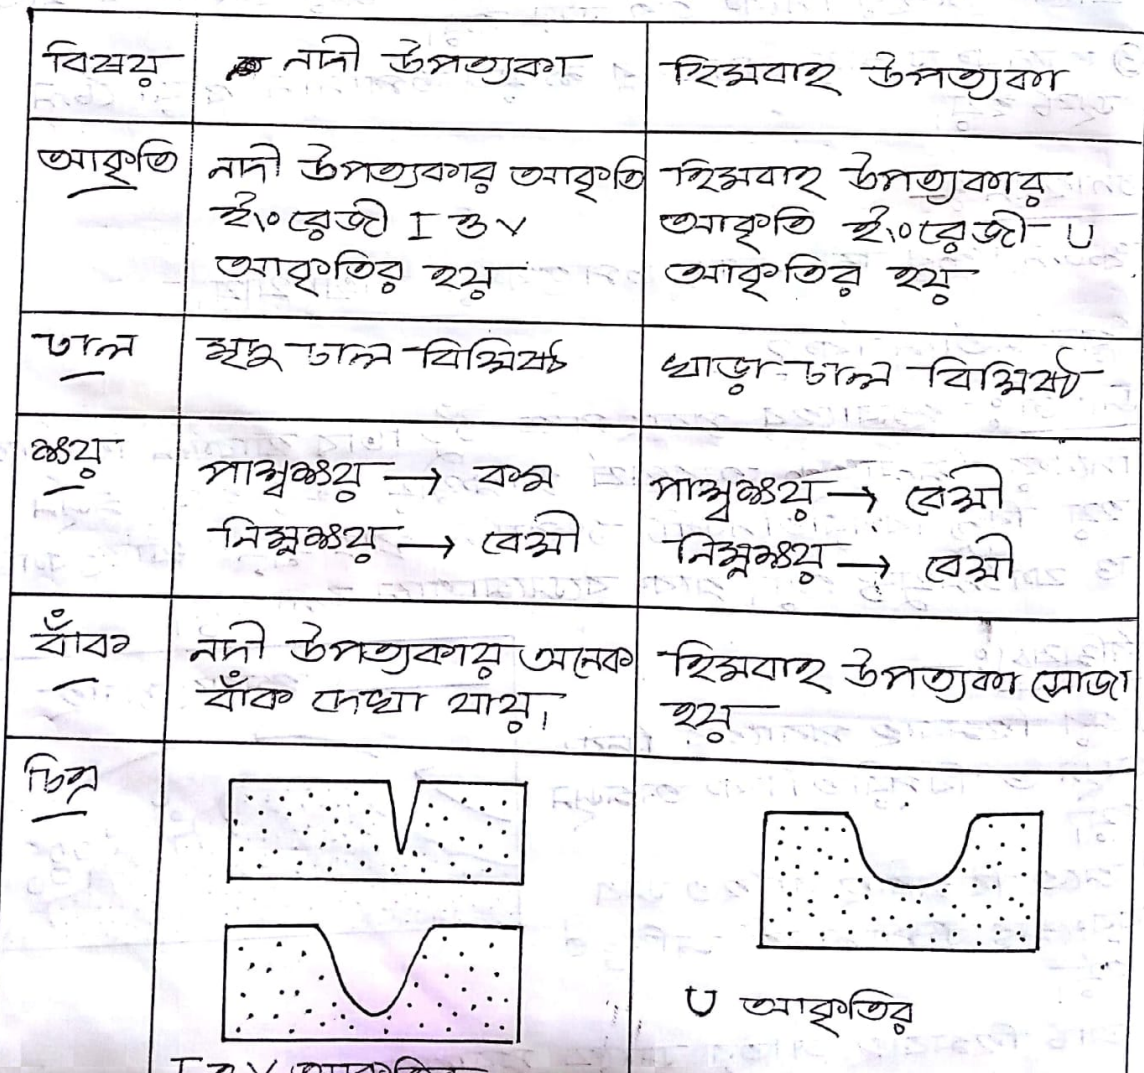 বিষয়
নদী উপত্যকা
হিমবাহ উপত্যকা
আকৃতি
নদী উপত্যকার আকৃতি
ইংরেজী I ও V
আকৃতির হয়
হিমবাহ উপত্যকার
আকৃতি ইংরেজী U
আকৃতির হয়
ঢাল
মৃদু ঢাল বিশিষ্ট
খাড়া ঢাল বিশিষ্ট
ক্ষয়
পার্শ্বক্ষয় → কম
নিম্নক্ষয় → বেশী
পার্শ্বক্ষয় → বেশী
নিম্নক্ষয় → বেশী
বাঁক
নদী উপত্যকায় অনেক
বাঁক দেখা যায়।
হিমবাহ উপত্যকা সোজা
হয়
চিত্র
U আকৃতির
I ও V আকৃতির